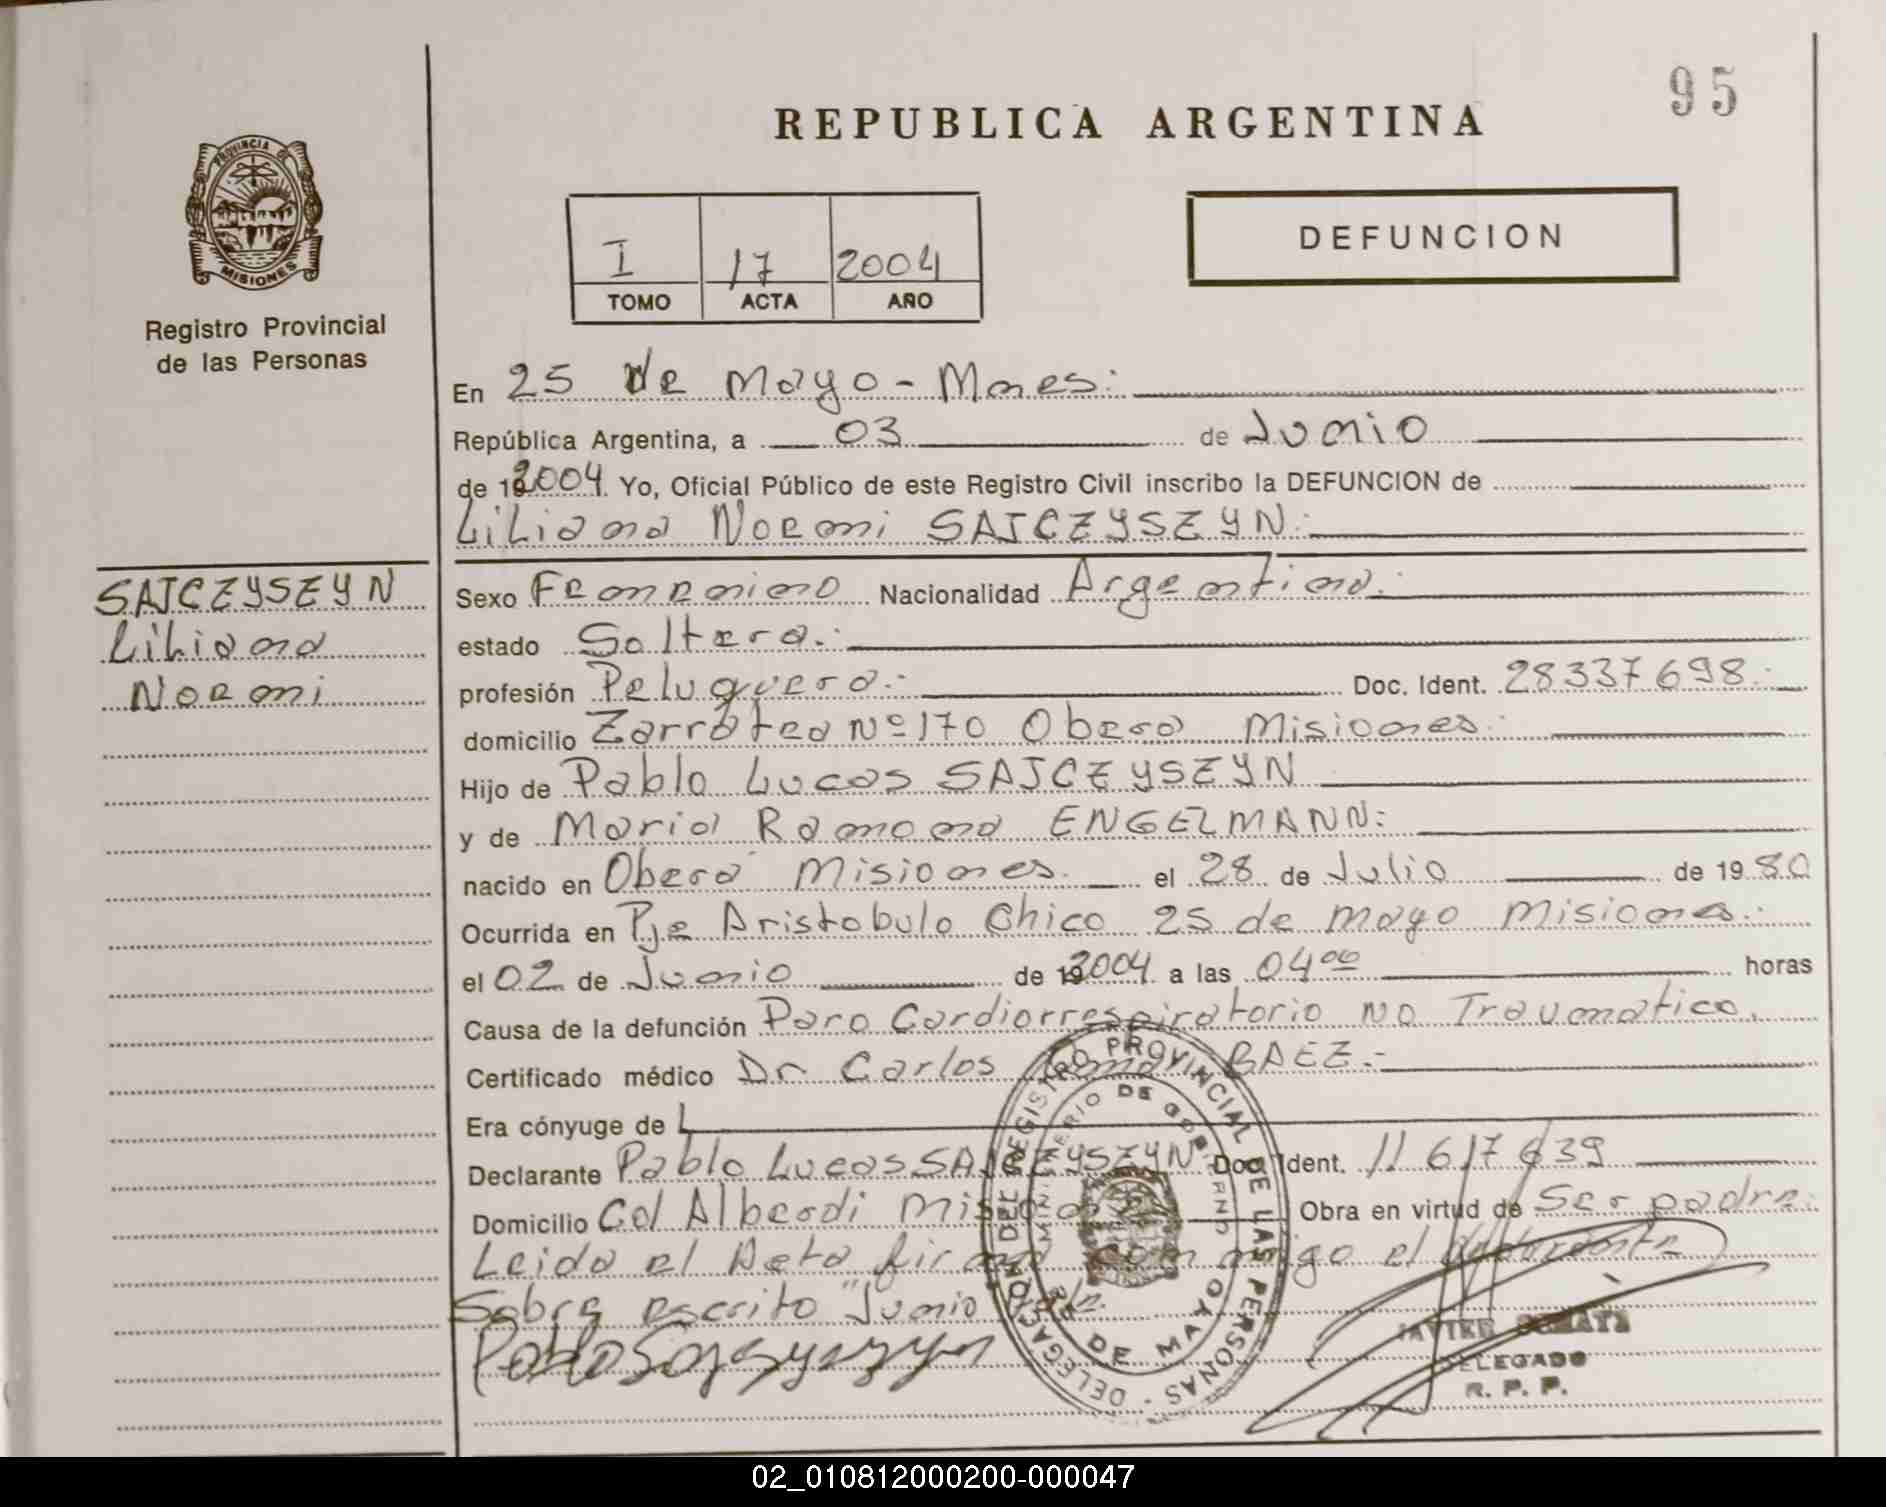 95
REPUBLICA ARGENTINA
PROVINCIA DE
MISIONES
Registro Provincial
de las Personas
DEFUNCION
I 17 2004
TOMO ACTA AÑO
En 25 de Mayo - Mnes.
República Argentina, a 03 de Junio
de 19 2004. Yo, Oficial Público de este Registro Civil inscribo la DEFUNCION de
Liliana Noemi SAJCZYSZYN.
SAJCZYSZYN
Liliana
Noemi
Sexo Femenino Nacionalidad Argentina.
estado Soltera.
profesión Peluquera. Doc. Ident. 28337698.
domicilio Zarratea Nº 170 Obera Misiones.
Hijo de Pablo Lucas SAJCZYSZYN
y de Maria Ramona ENGELMANN.
nacido en Oberá Misiones. el 28 de Julio de 1980
Ocurrida en Pje Aristobulo Chico 25 de Mayo Misiones.
el 02 de Junio de 19 2004 a las 04 00 horas
Causa de la defunción Paro Cardiorrespiratorio no Traumatico.
Certificado médico Dr Carlos BAEZ.-
Era cónyuge de
Declarante Pablo Lucas SAJCZYSZYN Doc. Ident. 11 617 639
Domicilio Col Alberdi Misiones Obra en virtud de Ser padre.
Leida el Acta firma conmigo el declarante
Sobre escrito "Junio" Vale.
Pablo Sajczyszyn
DELEGACION DEL REGISTRO PROVINCIAL DE LAS PERSONAS
MINISTERIO DE GOBIERNO
DE MAYO
JAVIER
DELEGADO
R. P. P.
02_010812000200-000047